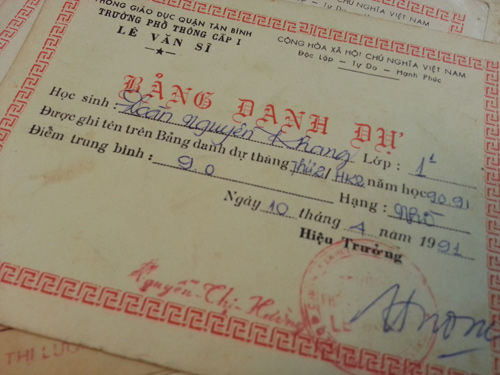 PHÒNG GIÁO DỤC QUẬN TÂN BÌNH
TRƯỜNG PHỔ THÔNG CẤP I
LÊ VĂN SĨ
CỘNG HÒA XÃ HỘI CHỦ NGHĨA VIỆT NAM
Độc Lập - Tự Do - Hạnh Phúc
BẢNG DANH DỰ
Học sinh: Nguyên Khang Lớp: 1
Được ghi tên trên Bảng danh dự tháng Thứ 2/ HK2 năm học 90.91
Điểm trung bình: 9.0 Hạng: Nhì
Ngày 10 tháng 4 năm 1991
Hiệu Trưởng
Nguyễn Thị
THỊ